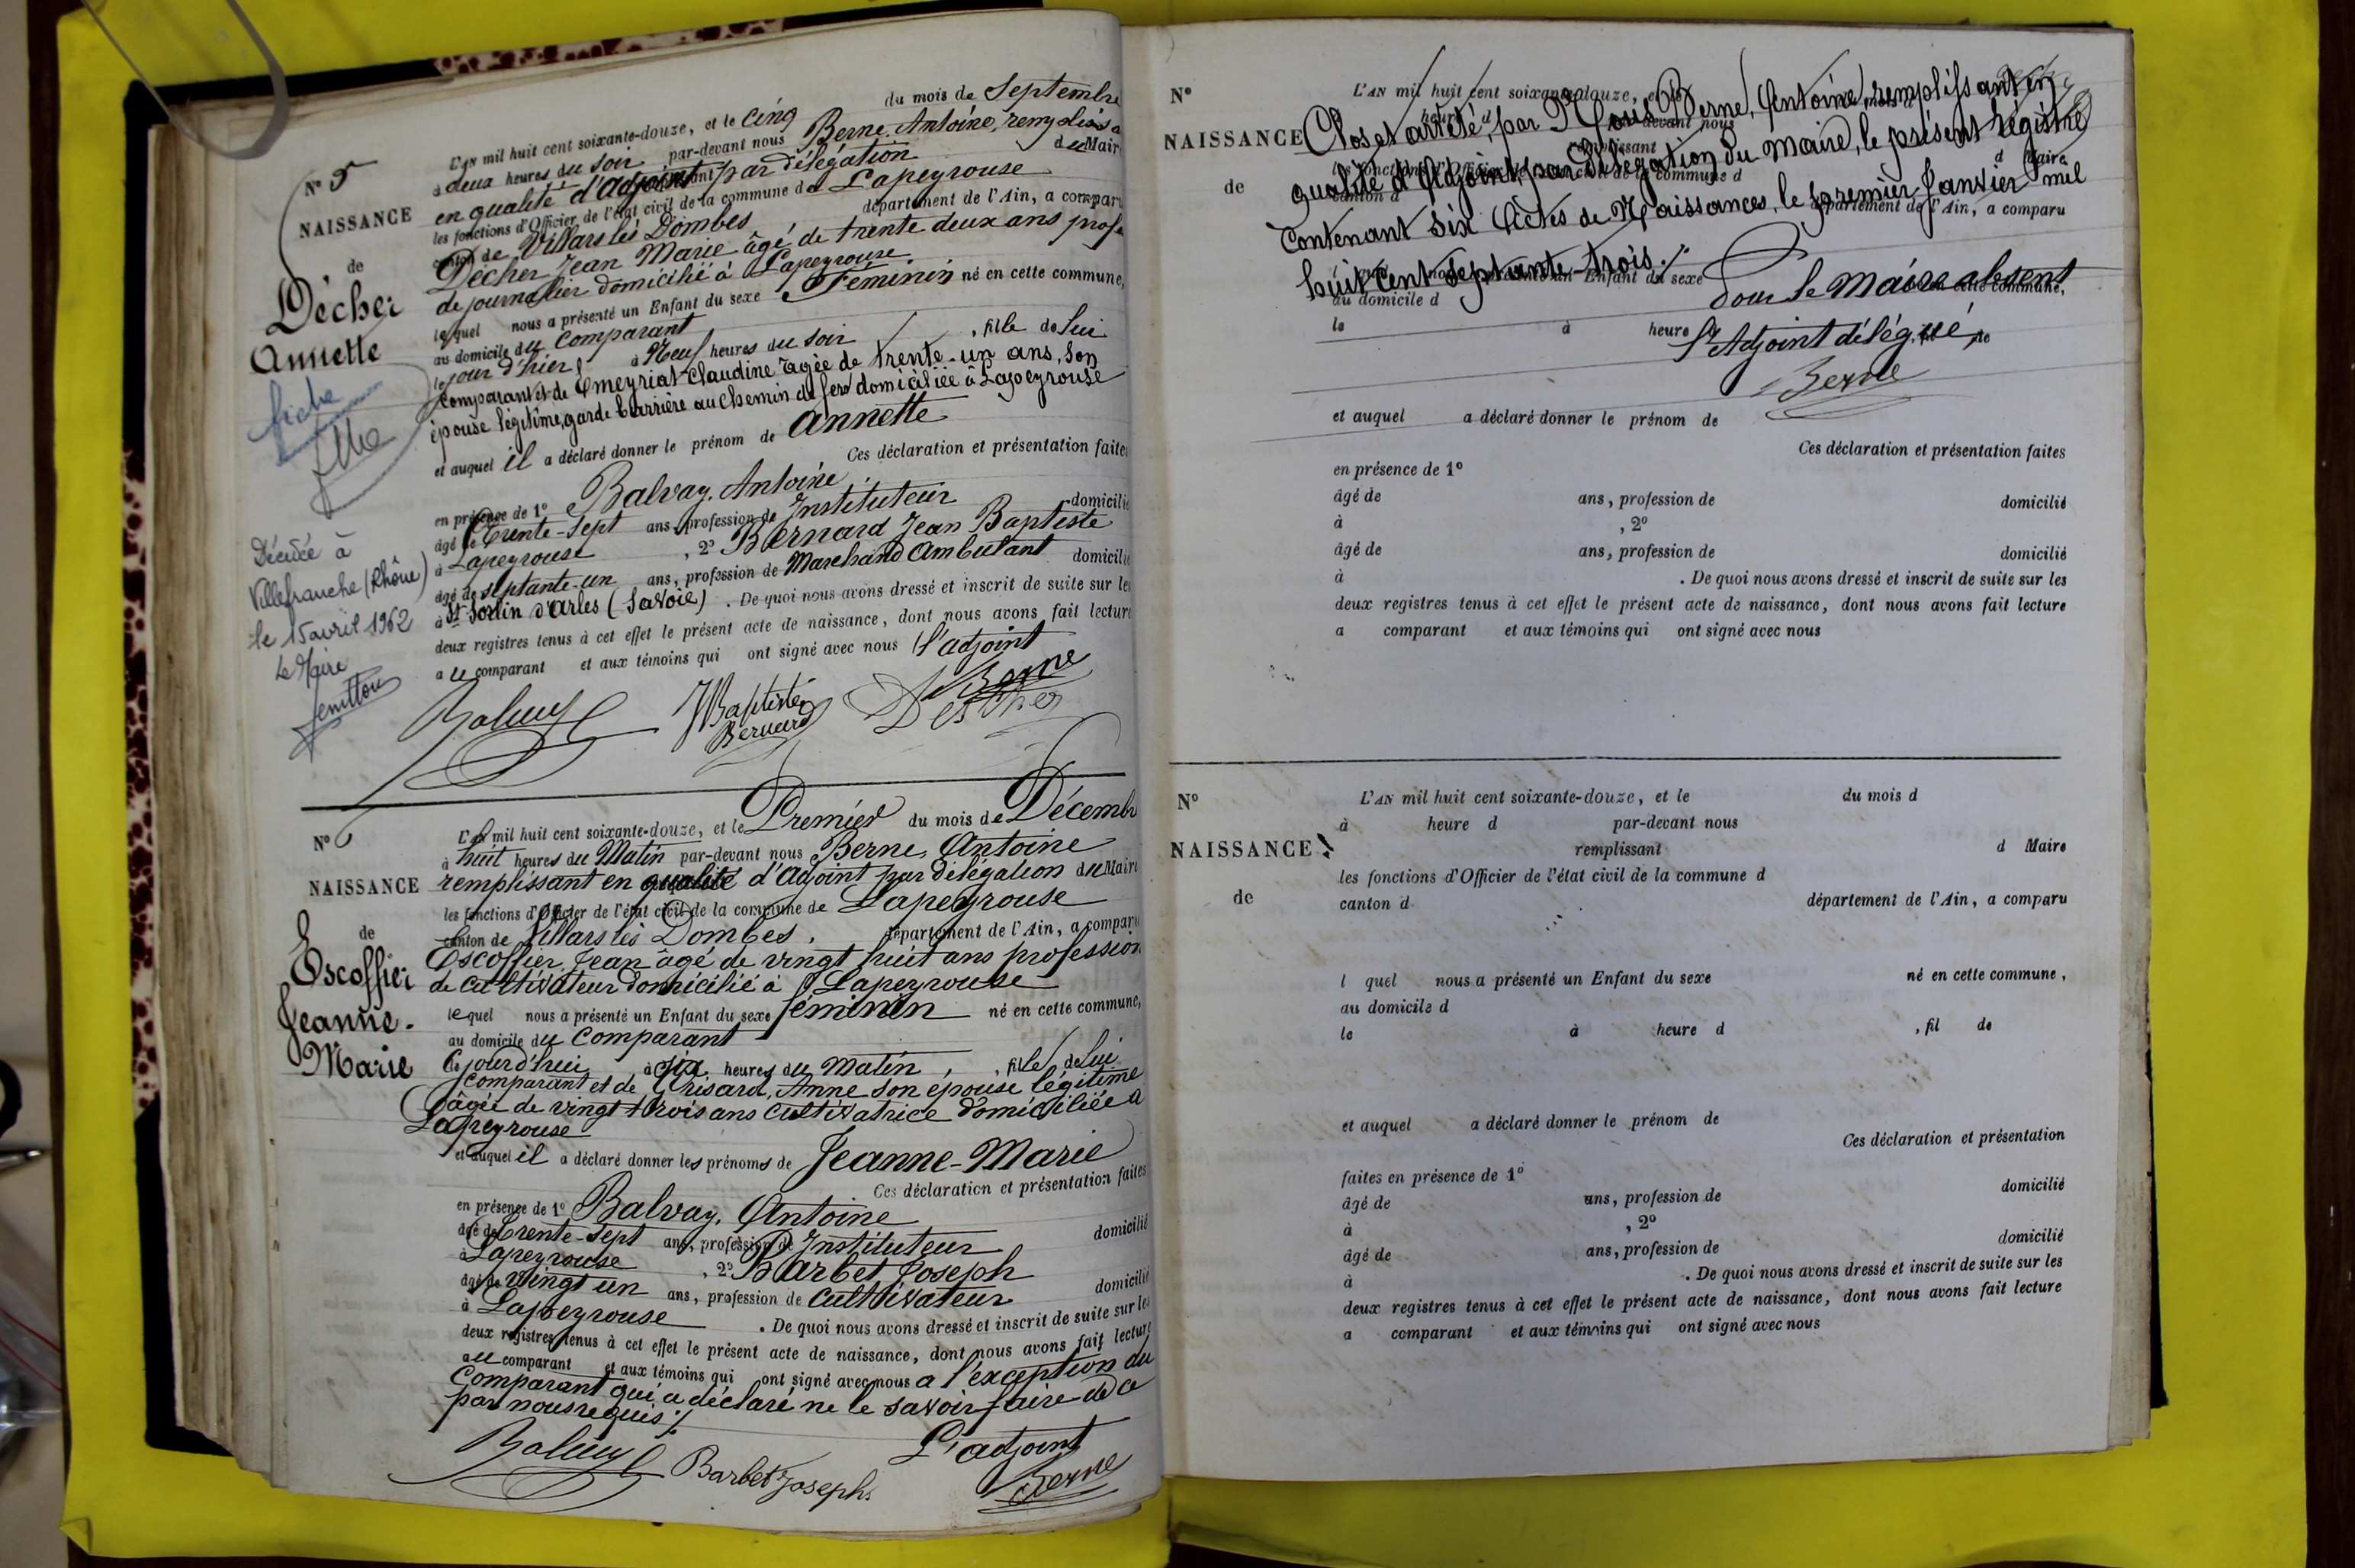 N° 5
NAISSANCE
de
Décher
Annette
fiche
Décédée à
Villefranche (Rhône)
le 15 avril 1962
Le Maire
L'AN mil huit cent soixante-douze, et le cinq du mois de Septembre
à deux heures du soir par-devant nous Berne, Antoine, remplissa
en qualité d'adjoint par délégation du Mair
les fonctions d'Officier de l'état civil de la commune de Lapeyrouse
canton de Villars les Dombes département de l'Ain, a compar
Décher Jean Marie âgé de trente deux ans profe
de journalier domicilié à Lapeyrouse
lequel nous a présenté un Enfant du sexe Féminin né en cette commune,
au domicile du Comparant
le jour d'hier à Neuf heures du soir , fille de lui
comparant et de Emeyriat Claudine âgée de trente-un ans, son
épouse légitime, garde barrière au chemin de fer domiciliée à Lapeyrouse
et auquel il a déclaré donner le prénom de Annette
Ces déclaration et présentation faites
en présence de 1° Balvay, Antoine
âgé de Trente-Sept ans, profession de Instituteur domicilié
à Lapeyrouse , 2° Bernard Jean Baptiste
âgé de septante-un ans, profession de Marchand ambulant domicilié
à St Sorlin d'Arles (Savoie) . De quoi nous avons dressé et inscrit de suite sur les
deux registres tenus à cet effet le présent acte de naissance, dont nous avons fait lecture
au comparant et aux témoins qui ont signé avec nous l'adjoint
Balvay
Baptiste
Bernard
Berne
N° 6
NAISSANCE
de
Escoffier
Jeanne-
Marie
L'AN mil huit cent soixante-douze, et le Premier du mois de Décembr
à huit heures du Matin par-devant nous Berne, Antoine
remplissant en qualité d'adjoint par délégation du Maire
les fonctions d'Officier de l'état civil de la commune de Lapeyrouse
canton de Villars les Dombes, département de l'Ain, a comparu
Escoffier, Jean âgé de vingt huit ans profession
de cultivateur domicilié à Lapeyrouse
lequel nous a présenté un Enfant du sexe féminin né en cette commune,
au domicile du Comparant
Cejourd'hui à six heures du Matin , fille de lui
comparant et de Grisard, Anne son épouse légitime
âgée de vingt trois ans cultivatrice domiciliée à
Lapeyrouse
et auquel il a déclaré donner les prénoms de Jeanne-Marie
Ces déclaration et présentation faites
en présence de 1° Balvay, Antoine
âgé de Trente-Sept ans, profession de Instituteur domicilié
à Lapeyrouse , 2° Barbet Joseph
âgé de vingt un ans, profession de cultivateur domicilié
à Lapeyrouse . De quoi nous avons dressé et inscrit de suite sur les
deux registres tenus à cet effet le présent acte de naissance, dont nous avons fait lecture
au comparant et aux témoins qui ont signé avec nous à l'exception du
Comparant qui a déclaré ne le savoir faire de ce
par nous requis ./.
L'adjoint
Balvay Barbet Joseph Berne
N°
NAISSANCE
de
L'AN mil huit cent soixante-douze, et le
Clos et arrêté, par Nous Berne, Antoine, remplissant en
qualité d'Adjoint, par délégation du Maire, le présent régistre
Contenant six Actes de Naissances, le premier Janvier mil
huit cent septante-trois ./.
canton d département de l'Ain, a comparu
Pour le Maire absent
au domicile d
le à heure
L'Adjoint délégué,
Berne
et auquel a déclaré donner le prénom de
Ces déclaration et présentation faites
en présence de 1°
âgé de ans, profession de domicilié
à , 2°
âgé de ans, profession de domicilié
à . De quoi nous avons dressé et inscrit de suite sur les
deux registres tenus à cet effet le présent acte de naissance, dont nous avons fait lecture
a comparant et aux témoins qui ont signé avec nous
N°
NAISSANCE
de
L'AN mil huit cent soixante-douze, et le du mois d
à heure d par-devant nous
remplissant d Maire
les fonctions d'Officier de l'état civil de la commune d
canton d département de l'Ain, a comparu
l quel nous a présenté un Enfant du sexe né en cette commune,
au domicile d
le à heure d , fil de
et auquel a déclaré donner le prénom de
Ces déclaration et présentation
faites en présence de 1°
âgé de ans, profession de domicilié
à , 2°
âgé de ans, profession de domicilié
à . De quoi nous avons dressé et inscrit de suite sur les
deux registres tenus à cet effet le présent acte de naissance, dont nous avons fait lecture
a comparant et aux témoins qui ont signé avec nous